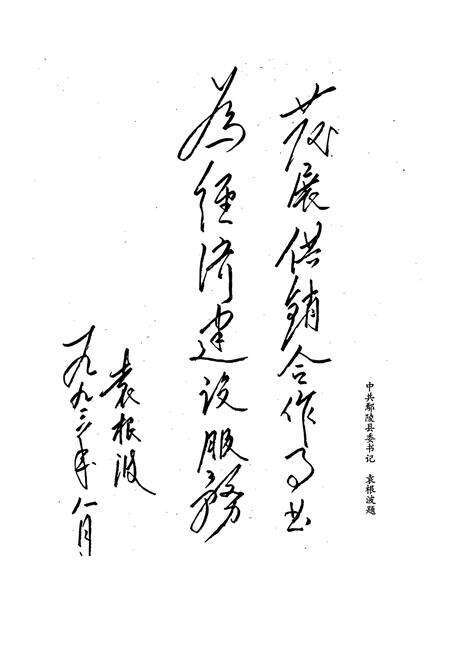 发展供销合作事业
为经济建设服务
袁根波
一九九三年八月
中共鄢陵县委书记 袁根波题